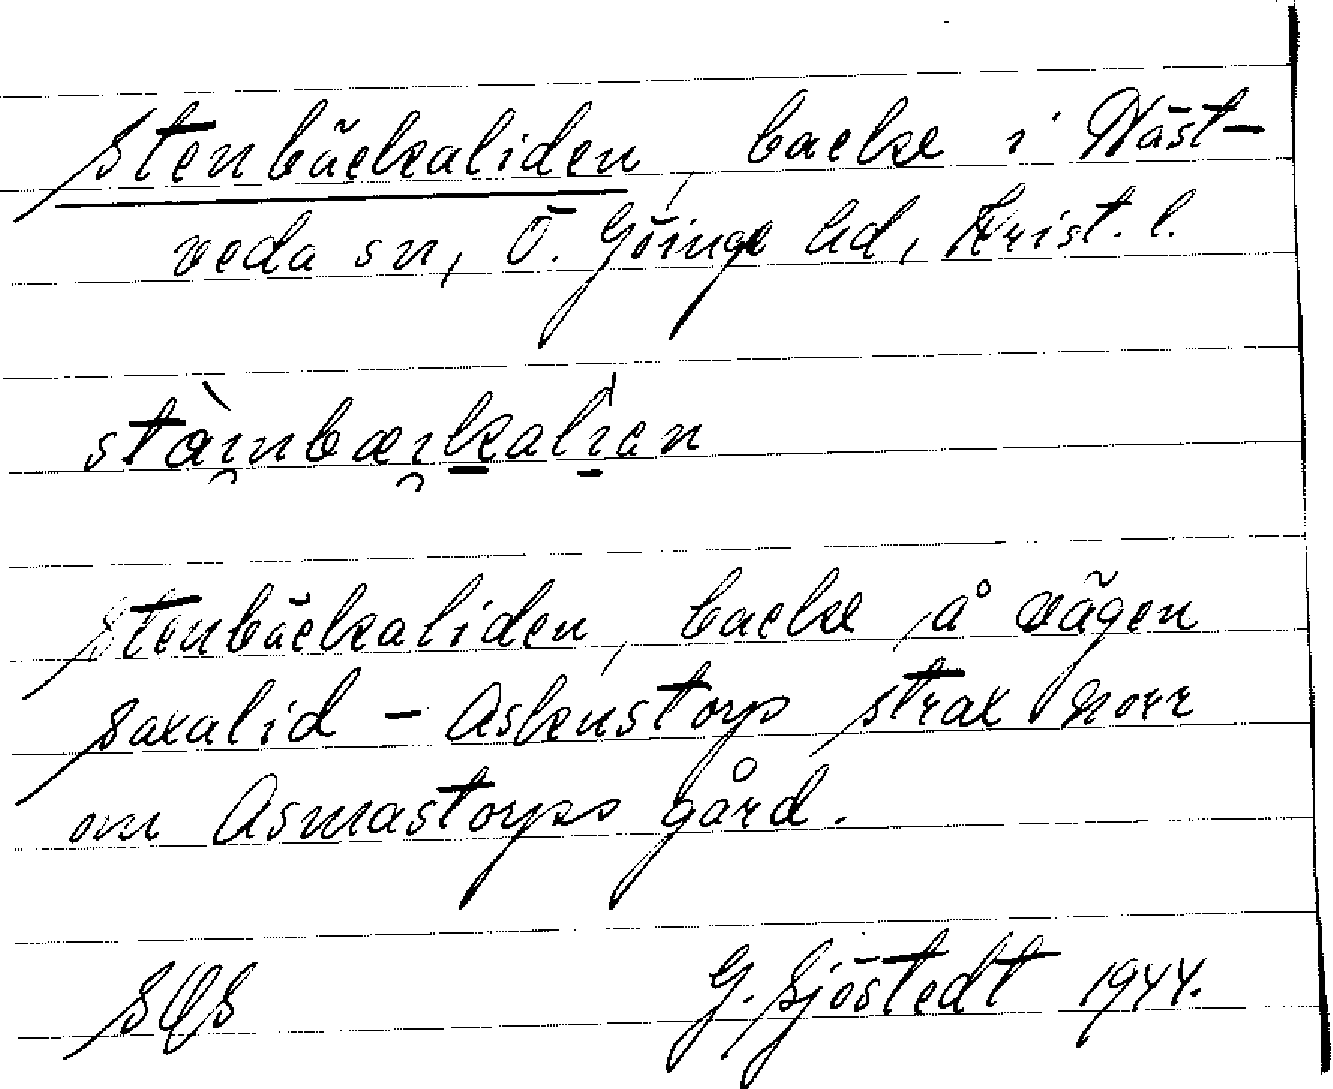 Stenbäckaliden, backe i Näst-
veda sn, Ö. Göinge hd, Krist. l.
stàinbæikalien
Stenbäckaliden, backe å vägen
Saxalid - Askenstorp strax norr
om Asmastorps gård.
G. Sjöstedt 1944.